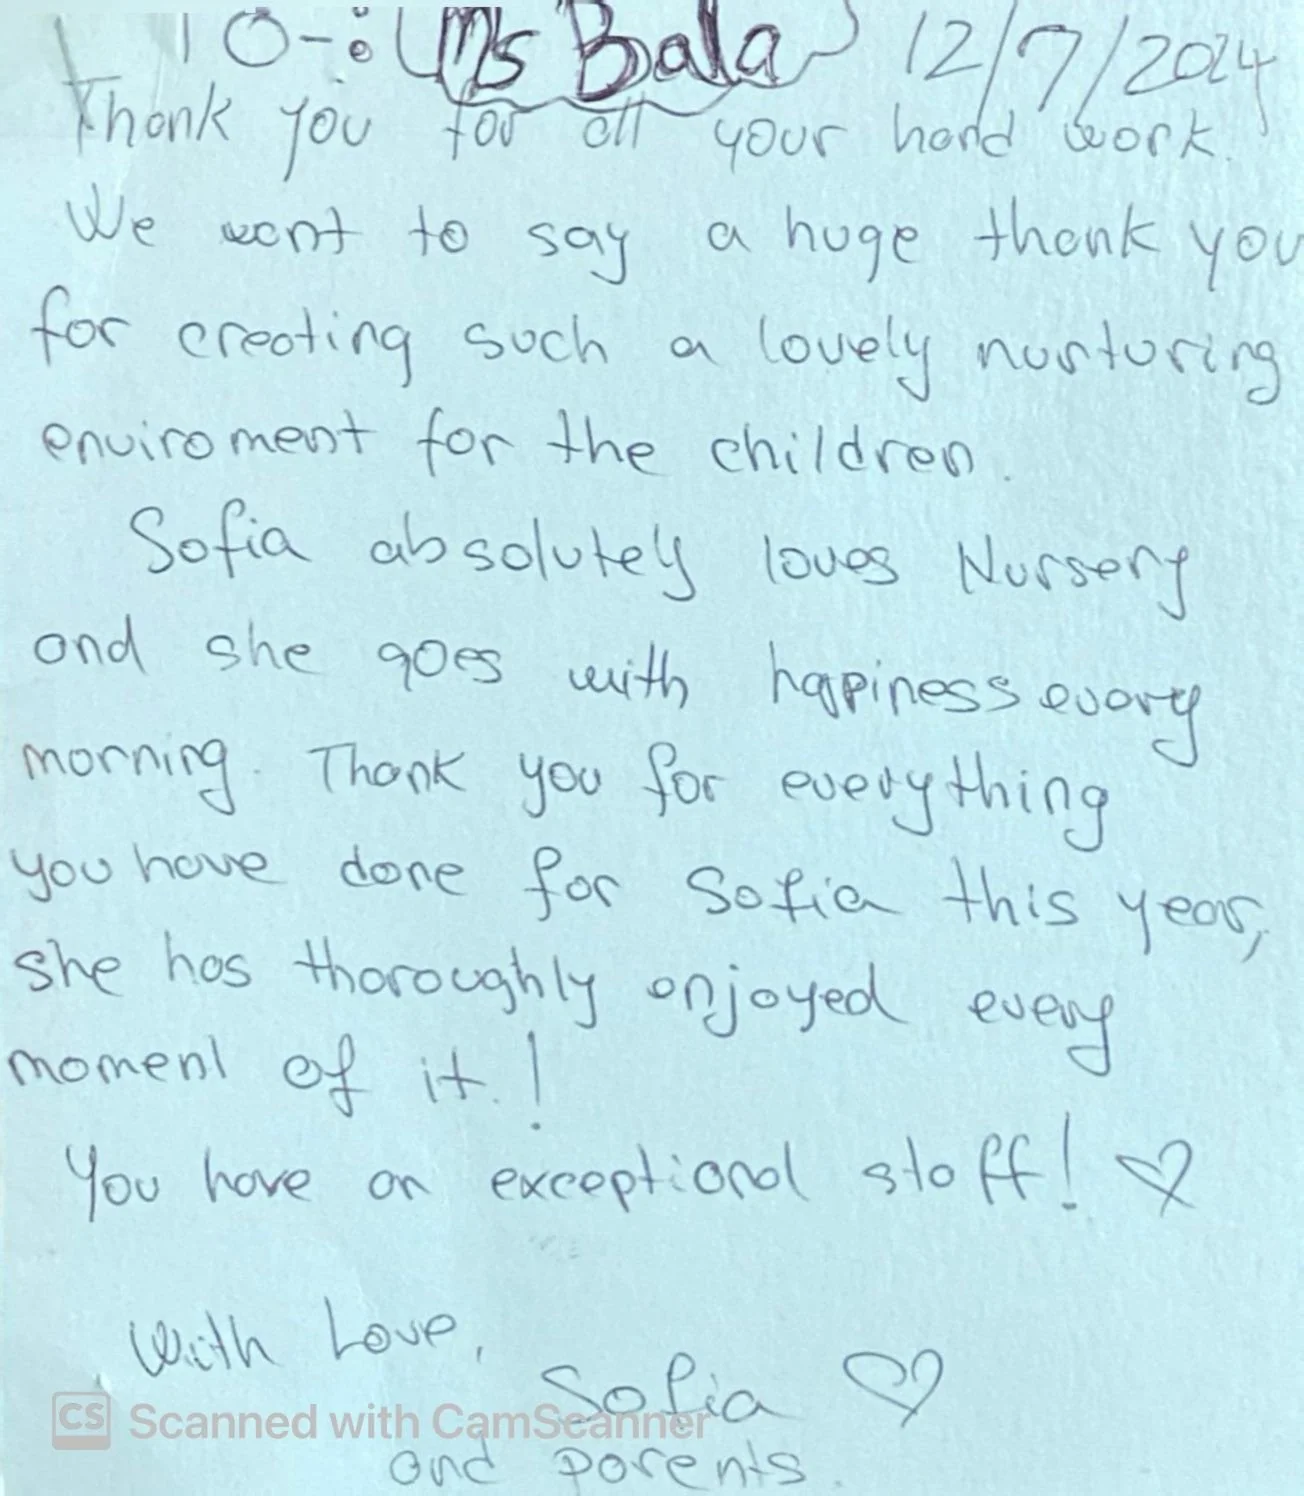 TO-: Ms Bala 12/7/2024
Thank you for all your hard work.
We want to say a huge thank you
for creating such a lovely nurturing
enviroment for the children.
Sofia absolutely loves Nursery
and she goes with happiness every
morning. Thank you for everything
you have done for Sofia this year,
she has thoroughly enjoyed every
moment of it.!
You have an exceptional staff! ♡
With Love,
Sofia ♡
CS Scanned with CamScanner
and parents.